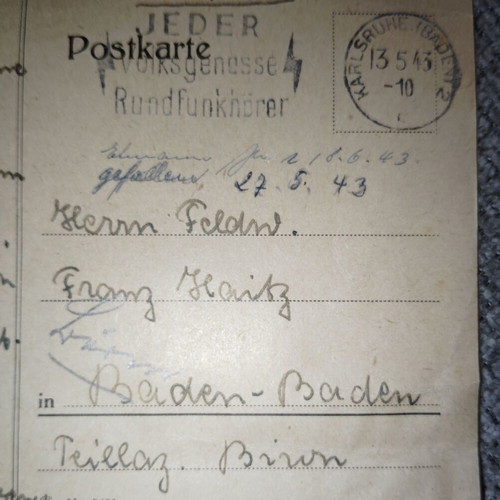 JEDER
Postkarte
Volksgenosse
Rundfunkhörer
KARLSRUHE (BADEN) 2
13.5.43
-10
18.6.43.
gefallen, 27.5.43
Herrn Feldw.
Franz Haitz
in Baden-Baden
Teillaz. Biron